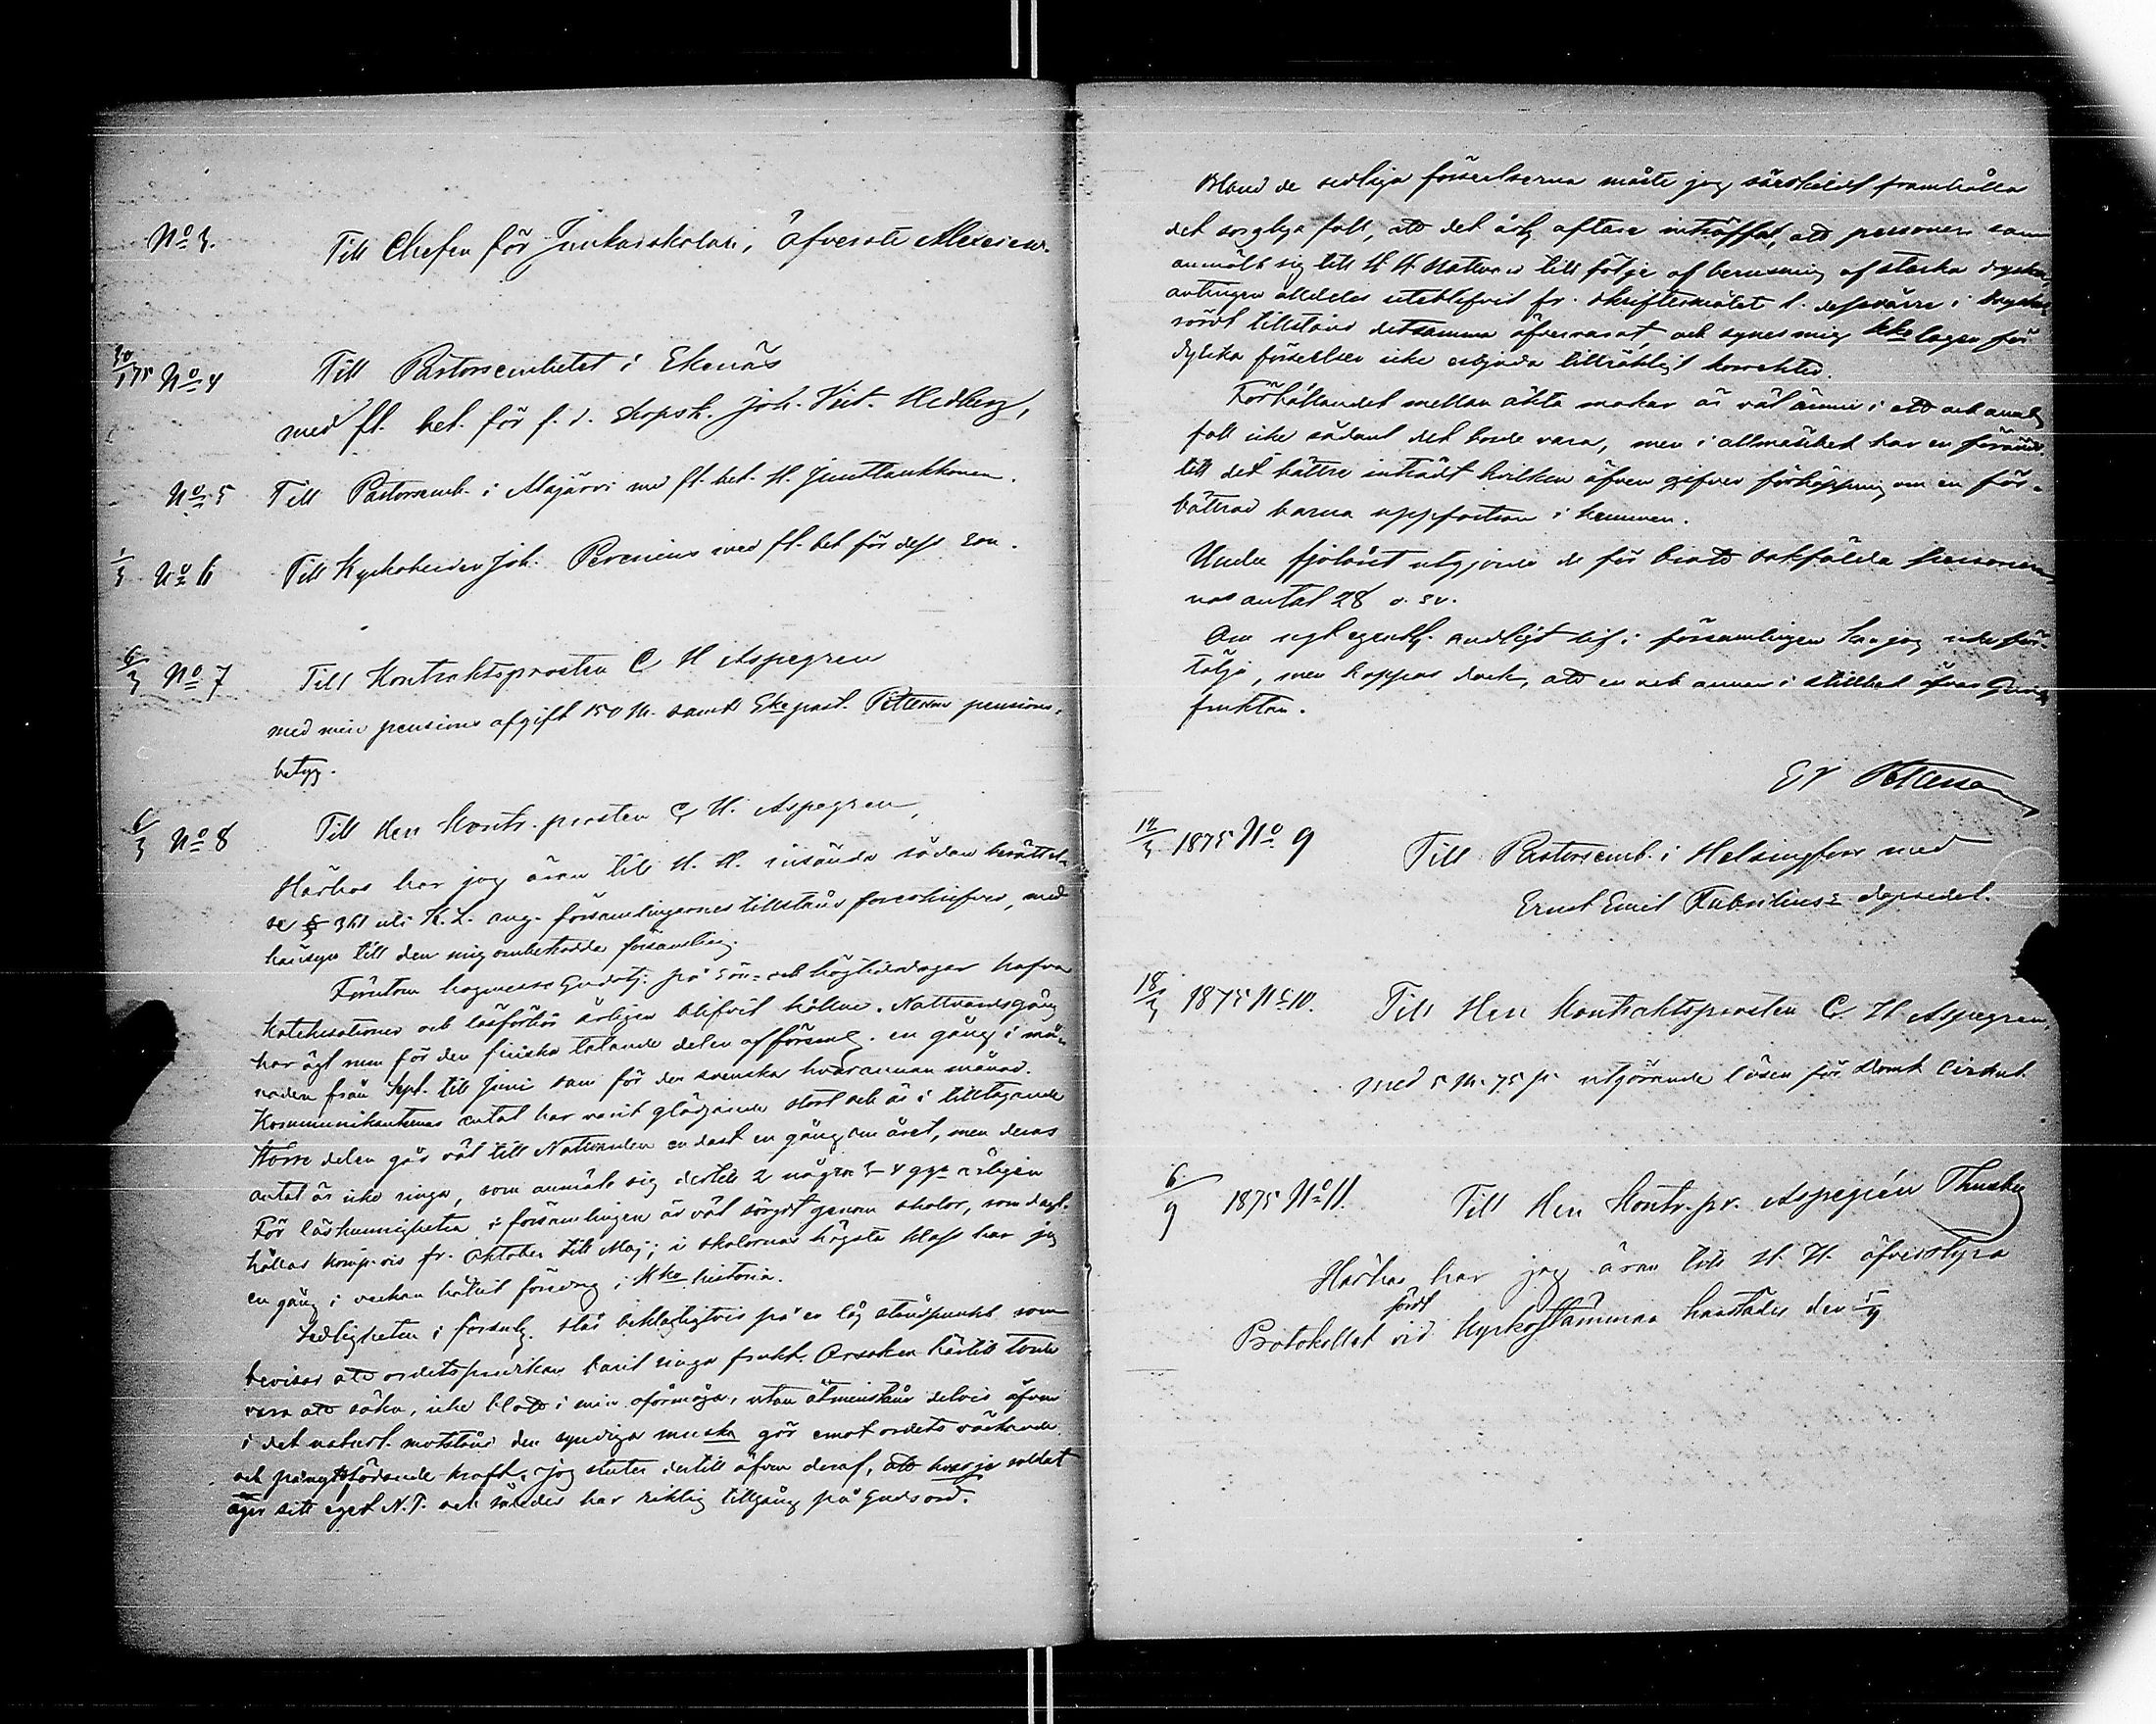 No 3. Till Chefen för Junkarskolan, Öfverste Alexeiew.
30/1 75 No 4 Till Pastorsembetet i Ekenäs
med fl. bet. för f. d. skepsk. Joh. Vict. Hedberg,
No 5 Till Pastorsemb. i Alajärvi med fl. bet. H. Junttlankkonen.
1/3 No 6 Till Kyrkoherden Joh. Perenius med fl. bet för dess son.
6/3 No 7 Till Kontraktsprosten C H Aspegren
med min pensions afgift 150 M. samt Eke past. Petterssons pensions-
betyg.
6/3 No 8 Till Herr Kontr. prosten C H. Aspegren,
Härhos har jag äran till H. H. insända sådan berättel-
se § 361 uti K. L. ang. församlingarnes tillstånd föreskrifver, med
hänsyn till den mig ombetrodda församling.
Förutom högmesso Gudstj. på sön- och högtidsdagar hafva
Katekisationer och läsförhör årligen blifvit hållne. Nattvardsgång
har ägt rum för den finska talande delen af förseml. en gång i må-
naden från Sept. till Juni samt för den svenska hvarannan månad.
Kommunikanternas antal har varit glädjande stort och är i tilltagande
Större delen går väl till Nattvarden endast en gång om året, men deras
antal är icke ringa, som anmält sig dertill 2 några 3-4 ggr årligen
För läskunnigheten i församlingen är väl sörgdt genom skolor, som dagl.
hållas komp.vis fr. Oktober till Maj; i skolornas högsta klass har jag
en gång i veckan hållit föredrag i Kko historia.
Sedligheten i försmlg. står beklagligtvis på en låg ståndpunkt som
bevisar att ordets predikan burit ringa frukt. Orsaken härtill torde
vara att söka, icke blott i min oförmåga, utan åtminstone delvis äfven
i det naturl. motstånd den syndiga menska gör emot ordets väckande
och pånyttfödande kraft. Jag sluter dertill äfven deraf, att hvarje soldat
äger sitt eget N. T. och således har riklig tillgång på Guds ord.
Bland de sedliga förseelserna måste jag särskildt framhålla
det sorgliga fall, att det årlg oftare inträffat, att personer som
anmält sig till H H Nattvard till följe af berusning af starka drycker
antingen alldeles uteblifvit fr. skriftermålet l. dessvärre i
rördt tillstånd detsamma öfvervarat, och synes mig Kko lagen för
dylika förseelser icke erbjuda tillräckligt korrektiv.
Förhållandet mellan äkta makar är väl ännu i ett och annat
fall icke sådant det borde vara, men i allmänhet har en förändr.
till det bättre inträdt hvilken äfven gifver förhoppning om en för-
bättrad barna uppfostran i hemmen.
Under fjolåret utgjorde de för brott sakfälde personer-
nas antal 28 o. sv.
Om regl egentl. andligt lif i församlingen kan jag icke för-
tälja, men hoppas dock, att en och annan i stillhet öfvar Guds
fruktan.
G V Pettersson
12/3 1875 No 9 Till Pastorsemb. i Helsingfors med
Ernst Emil Fabritius's dopsedel.
18/3 1875 No 10. Till Herr Kontraktsprosten C. H Aspegren,
med 5 M. 75 p. utgörande lösen för Domk Cirkul.
6/9 1875 No 11. Till Herr Kontr. pr. Aspegrén Thusby
Härhos har jag äran till H. H. öfverstyra
Protokollet fördt vid Kyrkostämman härstädes den 5/9